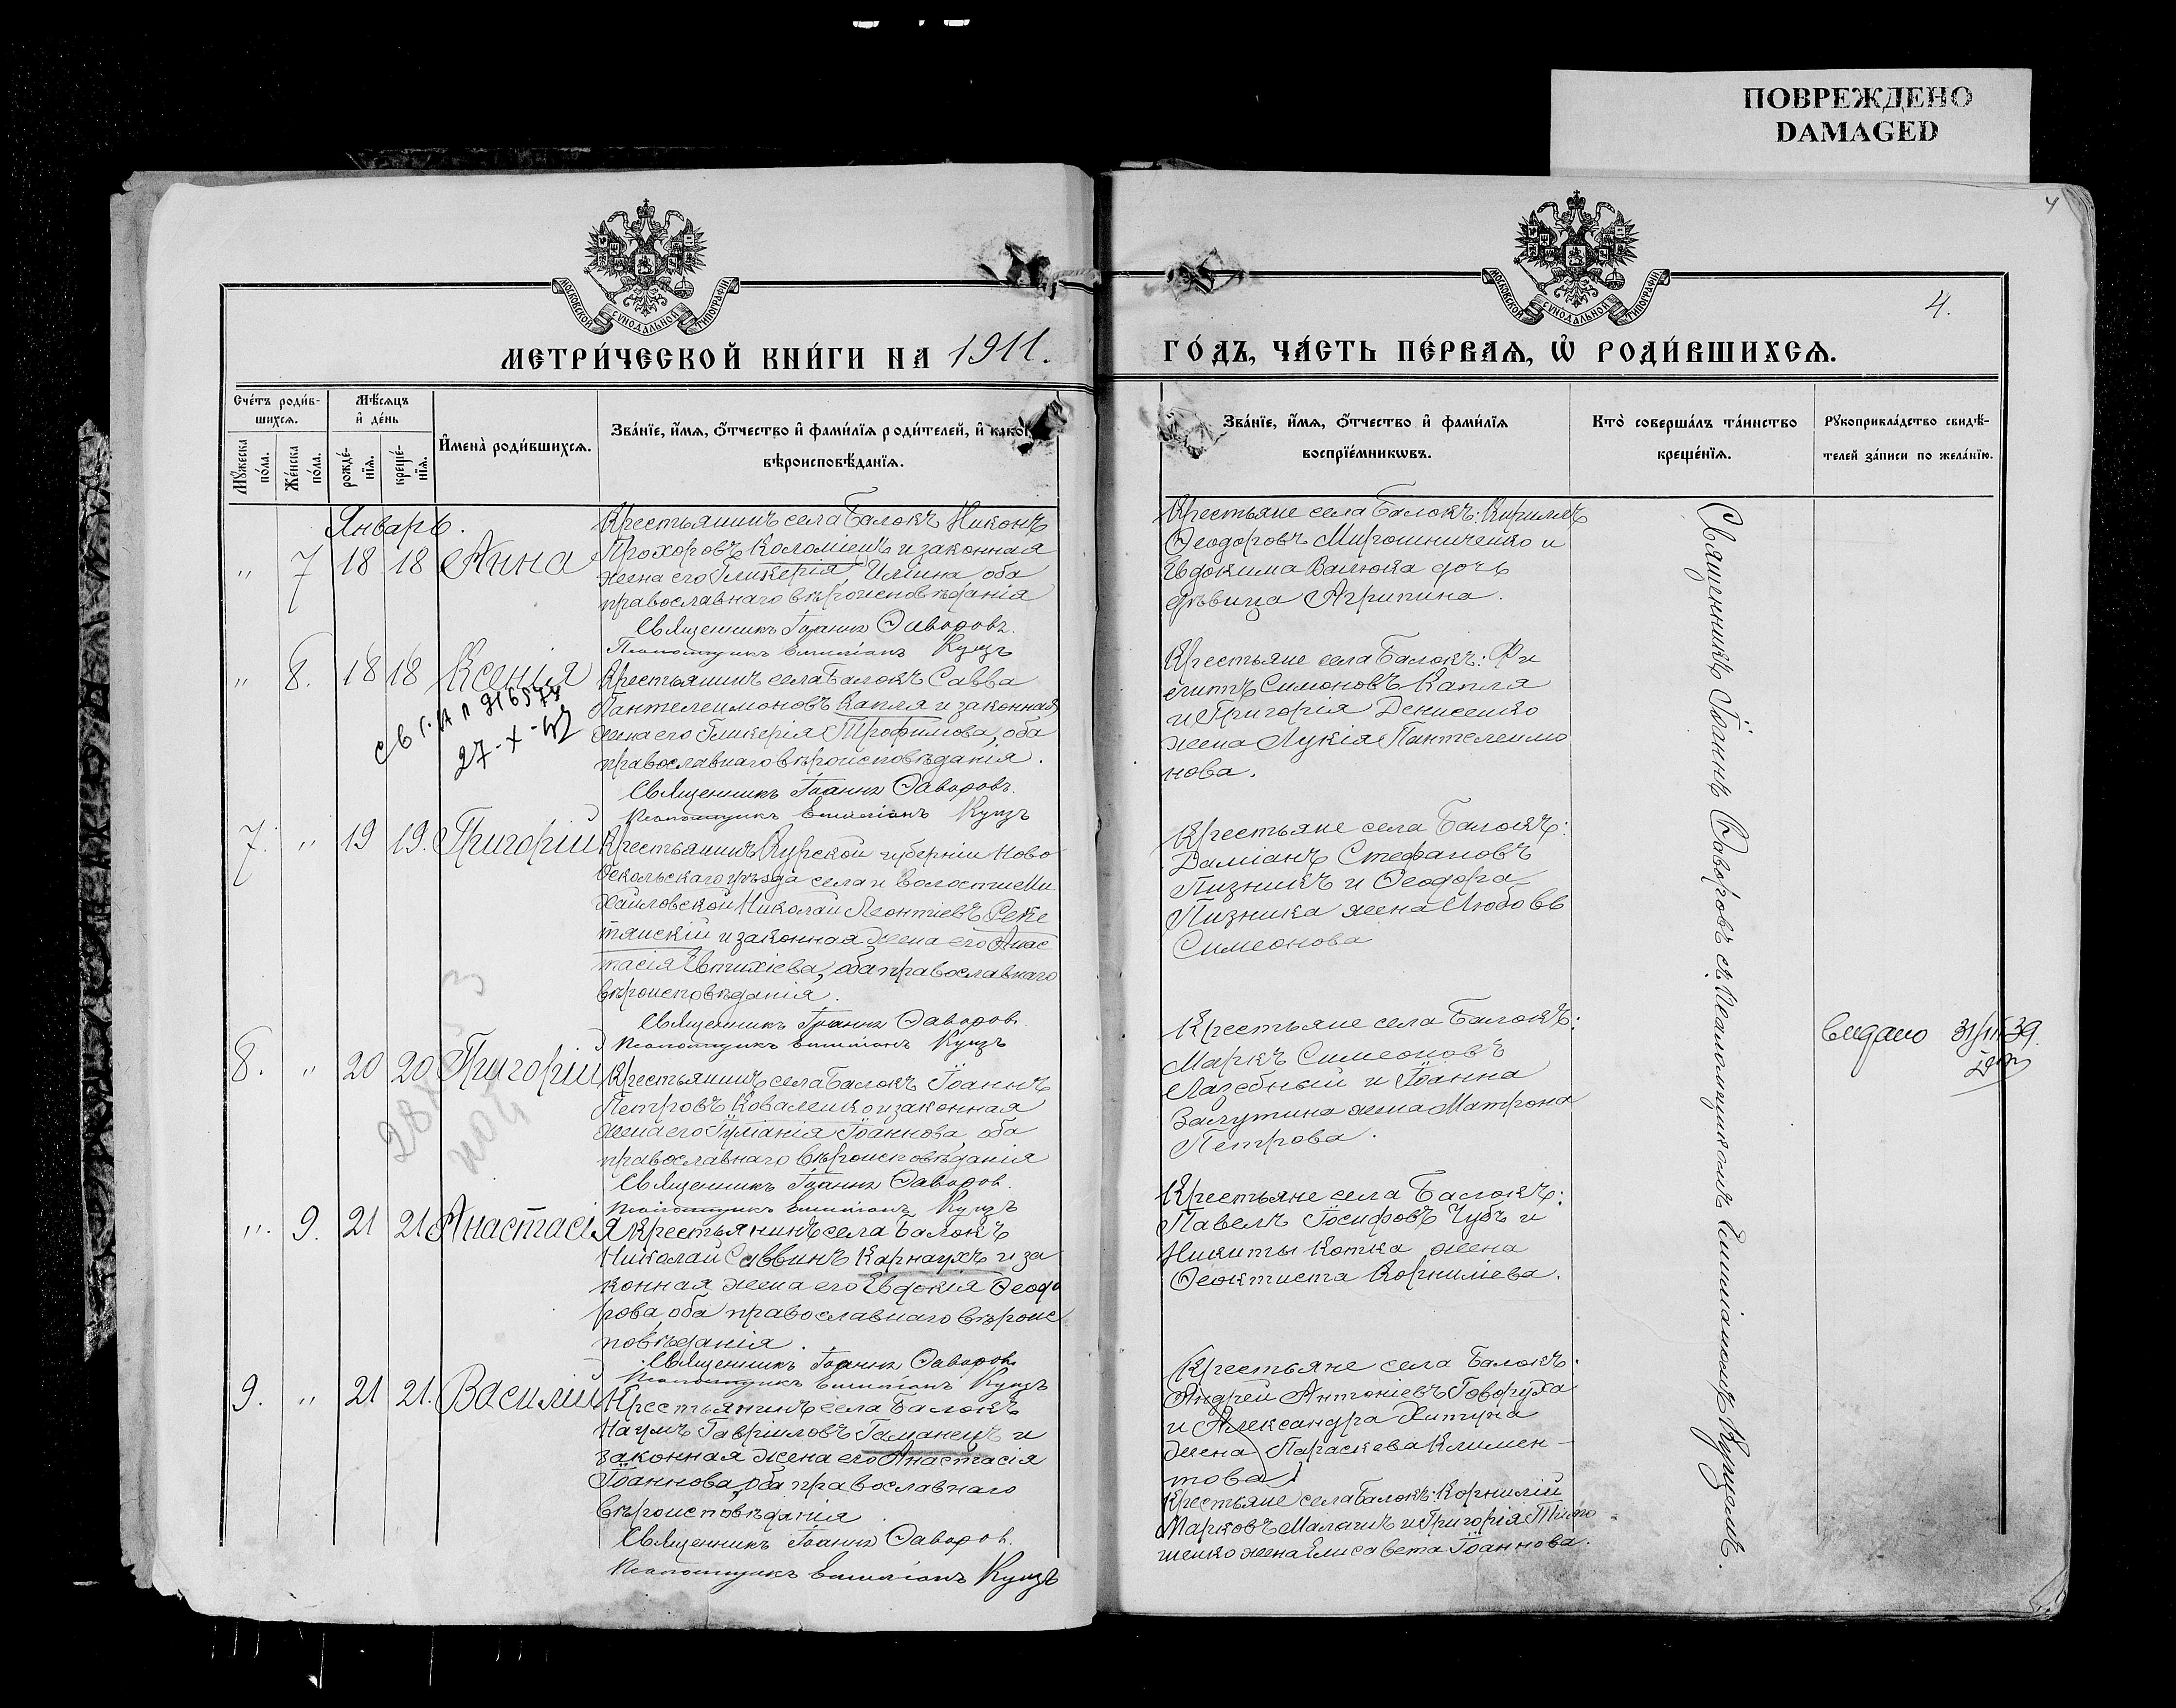 ПОВРЕЖДЕНО
DAMAGED
МОСКОВСКОЙ СѴНОДАЛЬНОЙ ТИПОГРАФІИ
МОСКОВСКОЙ СѴНОДАЛЬНОЙ ТИПОГРАФІИ
4
4.
МЕТРИ́ЧЕСКОЙ КНИ́ГИ НА 1911.
ГО́ДЪ, ЧА́СТЬ ПЕ́РВАѦ, Ѡ РОДИ́ВШИХСѦ.
Сче́тъ роди́в-
шихсѧ.
Мѣ́сѧцъ
и де́нь
Мꙋ́жеска по́ла.
Же́нска по́ла.
рожде́нїѧ.
креще́нїѧ.
И҆мена̀ роди́вшихсѧ.
Зва́нїе, и҆́мѧ, ѻ҆́тчество и҆ фами́лїѧ роди́телей, и҆ како́гѡ
вѣроисповѣ́данїѧ.
Зва́нїе, и҆́мѧ, ѻ҆́тчество и҆ фами́лїѧ
воспрїе́мникѡвъ.
Кто̀ соверша́лъ та́инство
креще́нїѧ.
Рꙋкоприкла́дство свидѣ́-
телей за́писи по жела́нїю.
Январь.
" 7 18 18 Анна
Крестьянинъ села Балокъ Никонъ
Прохоровъ Коломіецъ и законная
жена его Гликерія Иліина, оба
православнаго вѣроисповѣданія
Священникъ Іоаннъ Ѳаворовъ.
Псаломщикъ Емиліанъ Кущъ
Крестьяне села Балокъ: Кириллъ
Ѳеодоровъ Мирошниченко и
Евдокима Валюка дочь
дѣвица Агрипина.
" 8. 18 18 Ксенія
27-X-
Крестьянинъ села Балокъ Савва
Пантелеимоновъ Капля и законная
жена его Гликерія Трофимова, оба
православнаго вѣроисповѣданія.
Священникъ Іоаннъ Ѳаворовъ.
Псаломщикъ Емиліанъ Кущъ
Крестьяне села Балокъ:
Симоновъ Капля
и Григорія Денисенко
жена Лукія Пантелеимо
нова.
7. " 19 19. Григорій
Крестьянинъ Курской губерніи Ново
Оскольскаго уѣзда села и волости Ми
хайловской Николай Леонтіевъ Реке
тянскій и законная жена его Анас
тасія Евтихіева, оба православнаго
вѣроисповѣданія.
Священникъ Іоаннъ Ѳаворовъ.
Псаломщикъ Емиліанъ Кущъ
Крестьяне села Балокъ:
Даміанъ Стефановъ
Пизникъ и Ѳеодора
Пизника жена Любовь
Симеонова
8. " 20 20 Григорій
Крестьянинъ села Балокъ Іоаннъ
Петровъ Коваленко и законная
жена его Іуліанія Іоаннова, оба
православнаго вѣроисповѣданія
Священникъ Іоаннъ Ѳаворовъ.
Псаломщикъ Емиліанъ Кущъ
Крестьяне села Балокъ:
Маркъ Симеоновъ
Лазебный и Іоанна
Залутина жена Матрона
Петрова.
видано 31/III 39.
". 9. 21 21 Анастасія
Крестьянинъ села Балокъ
Николай Саввинъ Карнаухъ и за
конная жена его Евдокія Ѳеодо
рова, оба православнаго вѣроис
повѣданія.
Священникъ Іоаннъ Ѳаворовъ.
Псаломщикъ Емиліанъ Кущъ
Крестьяне села Балокъ:
Павелъ Іосифовъ Чубъ и
Никиты Котка жена
Ѳеоктиста Корниліева.
9. " 21 21. Василій
Крестьянинъ села Балокъ
Наумъ Гавріиловъ Гаманецъ и
законная жена его Анастасія
Іоаннова, оба православнаго
вѣроисповѣданія.
Священникъ Іоаннъ Ѳаворовъ.
Псаломщикъ Емиліанъ Кущъ
Крестьяне села Балокъ:
Андрей Антоніевъ Говоруха
и Александра Хитуна
жена Параскева Климен-
това
Крестьяне села Балокъ: Корнилій
Марковъ Малашъ и Григорія Тимо
шенко жена Елисавета Іоаннова.
Священникъ Іоаннъ Ѳаворовъ съ псаломщикомъ Емиліаномъ Кущемъ.